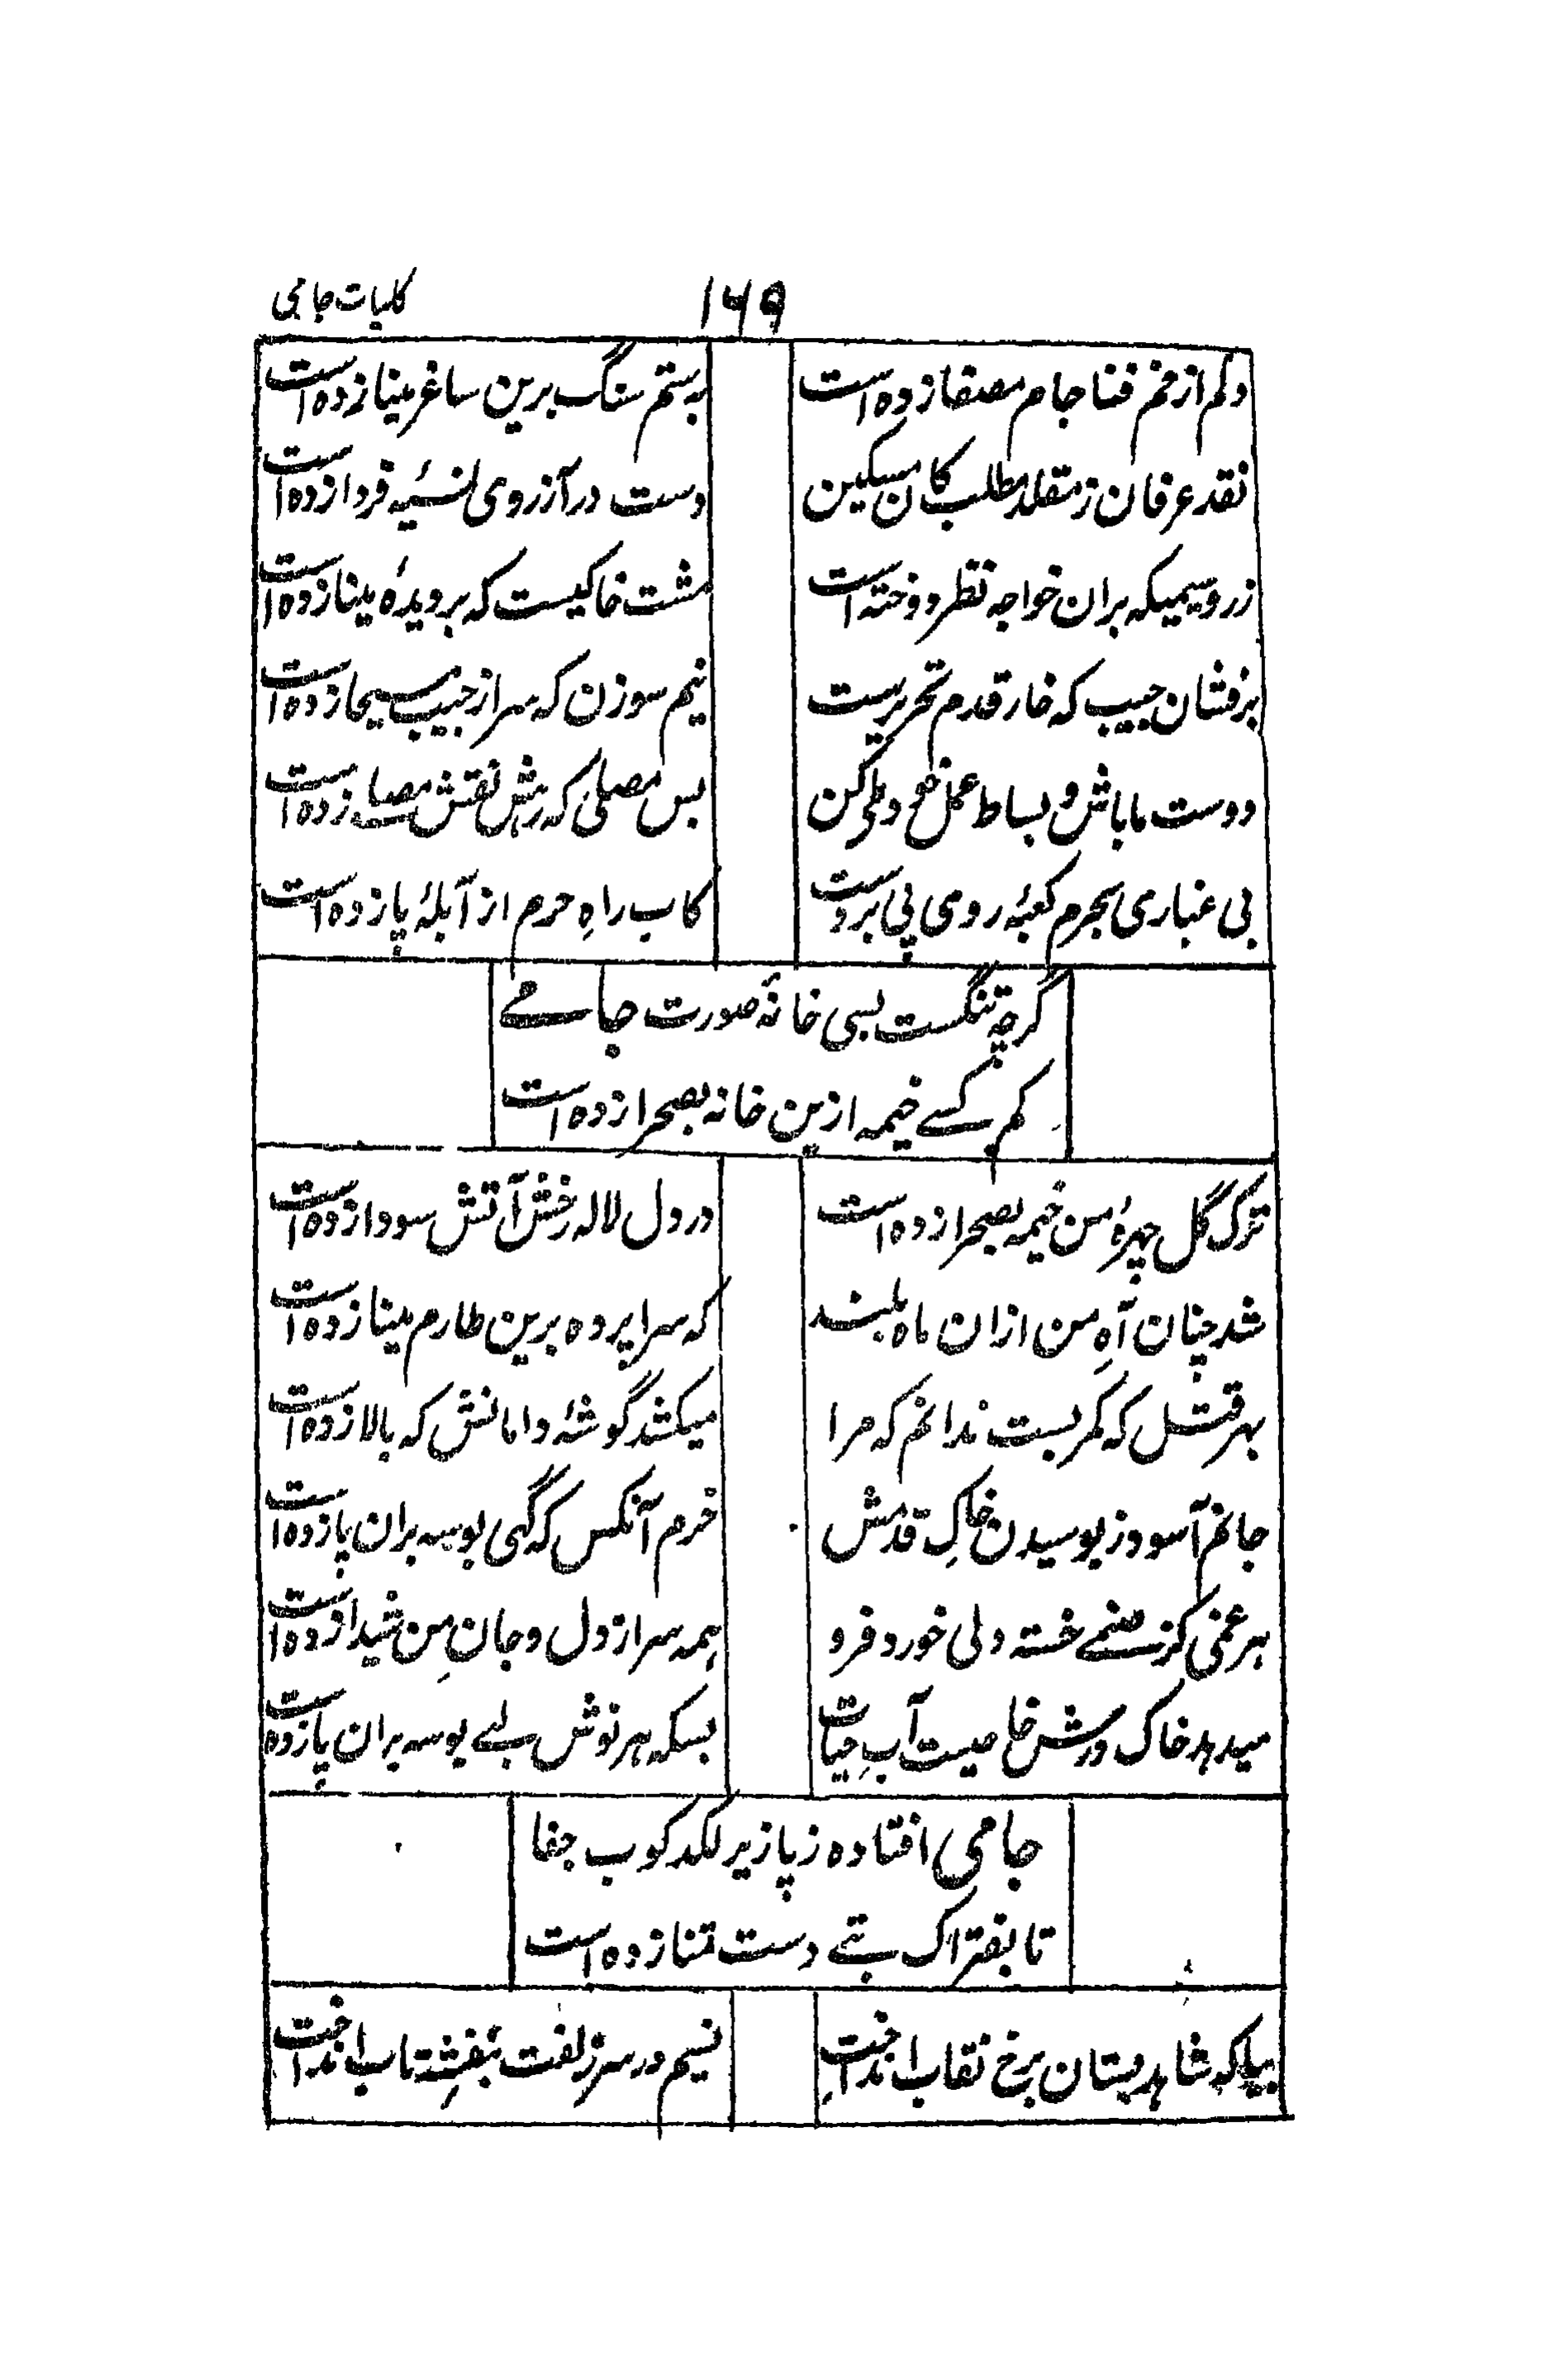 ۱۶۹ کلیات جامی
دلم از خم فنا جام مصفا زده است به ستم سنگ برین ساغر مینا زده است
نقد عرفان ز مقلد مطلب کان مسکین دست در آرزوی نسیۂ فردا زده است
زر و سیمیکه بران خواجه نظر دوخته است مشت خاکیست که بر دیدۂ بینا زده است
برفشان جیب که خار قدم تحریرست نیم سوزن که سر از جیب مسیحا زده است
دوست ما باش و بساط عمل خود طی کن بس مصلی که رهش نقش مصلے زده است
بی غباری بحرم کعبۂ روی پی بردست کاب راهِ حرم از آبلۂ پا زده است
گرچه تنگست بسی خانۂ صورت جامے
کم کسے خیمه ازین خانه بصحرا زده است
ترک گل چهرۂ من خیمه بصحرا زده است در دل لاله رخش آتش سودا زده است
شد چنان آهِ من ازان ماه بلند که سراپرده برین طارم مینا زده است
بهر قتل که کمر بست ندانم که مرا میکشد گوشۂ دامانش که بالا زده است
جانم آسود ز بوسیدن خاکِ قدمش خرم آنکس که گهی بوسه بران پا زده است
هر غمی کز صنمے خسته دلی خورد فرو همه سر از دل و جانِ من شیدا زده است
میدهد خاک درش خاصیت آبِ حیات بسکه هر نوش لبے بوسه بران پا زده است
جامی افتاده ز پا زیر لکد کوب جفا
تا بفتراک بتے دست تمنا زده است
بیا که شاهد بستان برخ نقاب انداخت نسیم در سر زلفت بنفشه تاب انداخت